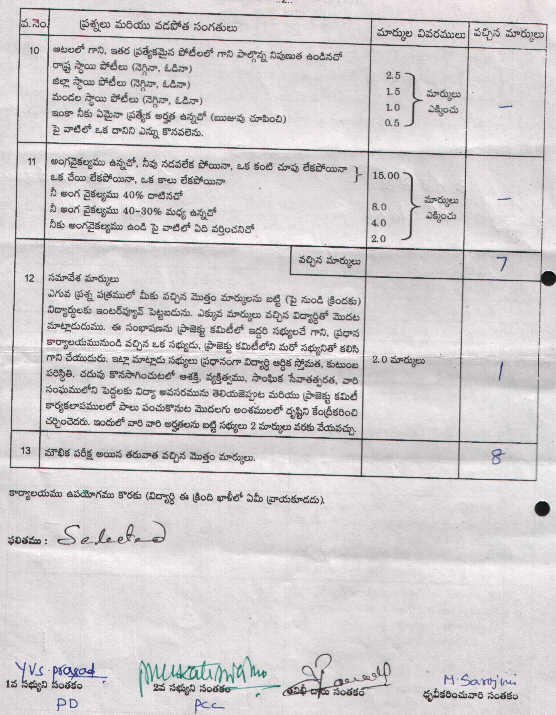 2
వ.నెం. ప్రశ్నలు మరియు వడపోత సంగతులు మార్కుల వివరములు వచ్చిన మార్కులు
10 ఆటలలో గాని, ఇతర ప్రత్యేకమైన పోటీలలో గాని పాల్గొన్న నిపుణుత ఉండినచో
రాష్ట్ర స్థాయి పోటీలు (నెగ్గినా, ఓడినా) 2.5
జిల్లా స్థాయి పోటీలు (నెగ్గినా, ఓడినా) 1.5 మార్కులు
మండల స్థాయి పోటీలు (నెగ్గినా, ఓడినా) 1.0 ఎక్కించు –
ఇంకా నీకు ఏమైనా ప్రత్యేక అర్హత ఉన్నచో (ఋజువు చూపించి) 0.5
పై వాటిలో ఒక దానిని ఎన్ను కొనవలెను.
11 అంగవైకల్యము ఉన్నచో, నీవు నడవలేక పోయినా, ఒక కంటి చూపు లేకపోయినా
ఒక చేయి లేకపోయినా, ఒక కాలు లేకపోయినా 15.00
నీ అంగ వైకల్యము 40% దాటినచో మార్కులు –
నీ అంగ వైకల్యము 40-30% మధ్య ఉన్నచో 8.0 ఎక్కించు
నీకు అంగవైకల్యము ఉండి పై వాటిలో ఏది వర్తించనిచో 4.0
2.0
వచ్చిన మార్కులు 7
12 సమావేశ మార్కులు
ఎగువ ప్రశ్న పత్రములో మీకు వచ్చిన మొత్తం మార్కులను బట్టి (పై నుండి క్రిందకు)
విద్యార్థులకు ఇంటర్వ్యూన్ పెట్టబడును. ఎక్కువ మార్కులు వచ్చిన విద్యార్థితో మొదట
మాట్లాడుదుము. ఈ సంభాషణను ప్రాజెక్టు కమిటీలో ఇద్దరి సభ్యులచే గాని, ప్రధాన
కార్యాలయమునుండి వచ్చిన ఒక సభ్యుడు, ప్రాజెక్టు కమిటీలోని మరో సభ్యునితో కలిసి
గాని చేయుదురు. ఇట్లా మాట్లాడు సభ్యులు ప్రధానంగా విద్యార్థి ఆర్థిక స్తోమత, కుటుంబ 2.0 మార్కులు 1
పరిస్థితి, చదువు కొనసాగించుటలో ఆశక్తి, వ్యక్తిత్వము, సాంఘిక సేవాతత్పరత, వారి
సంఘములోని పెద్దలకు విద్య అవసరమును తెలియజెప్పుట మరియు ప్రాజెక్టు కమిటీ
కార్యకలాపములలో పాలు పంచుకొనుట మొదలగు అంశములలో దృష్టిని కేంద్రీకరించి
చర్చించెదరు. ఇందులో వారి వారి అర్హతలను బట్టి సభ్యులు 2 మార్కులు వరకు వేయవచ్చు.
13 మౌఖిక పరీక్ష అయిన తరువాత వచ్చిన మొత్తం మార్కులు. 8
కార్యాలయము ఉపయోగము కొరకు (విద్యార్థి ఈ క్రింది ఖాళీలో ఏమీ వ్రాయకూడదు).
ఫలితము : Selected
Y.V.S. prasad M. Sarojini
1వ సభ్యుని సంతకం 2వ సభ్యుని సంతకం సంతకం ధృవీకరించువారి సంతకం
PD PCC